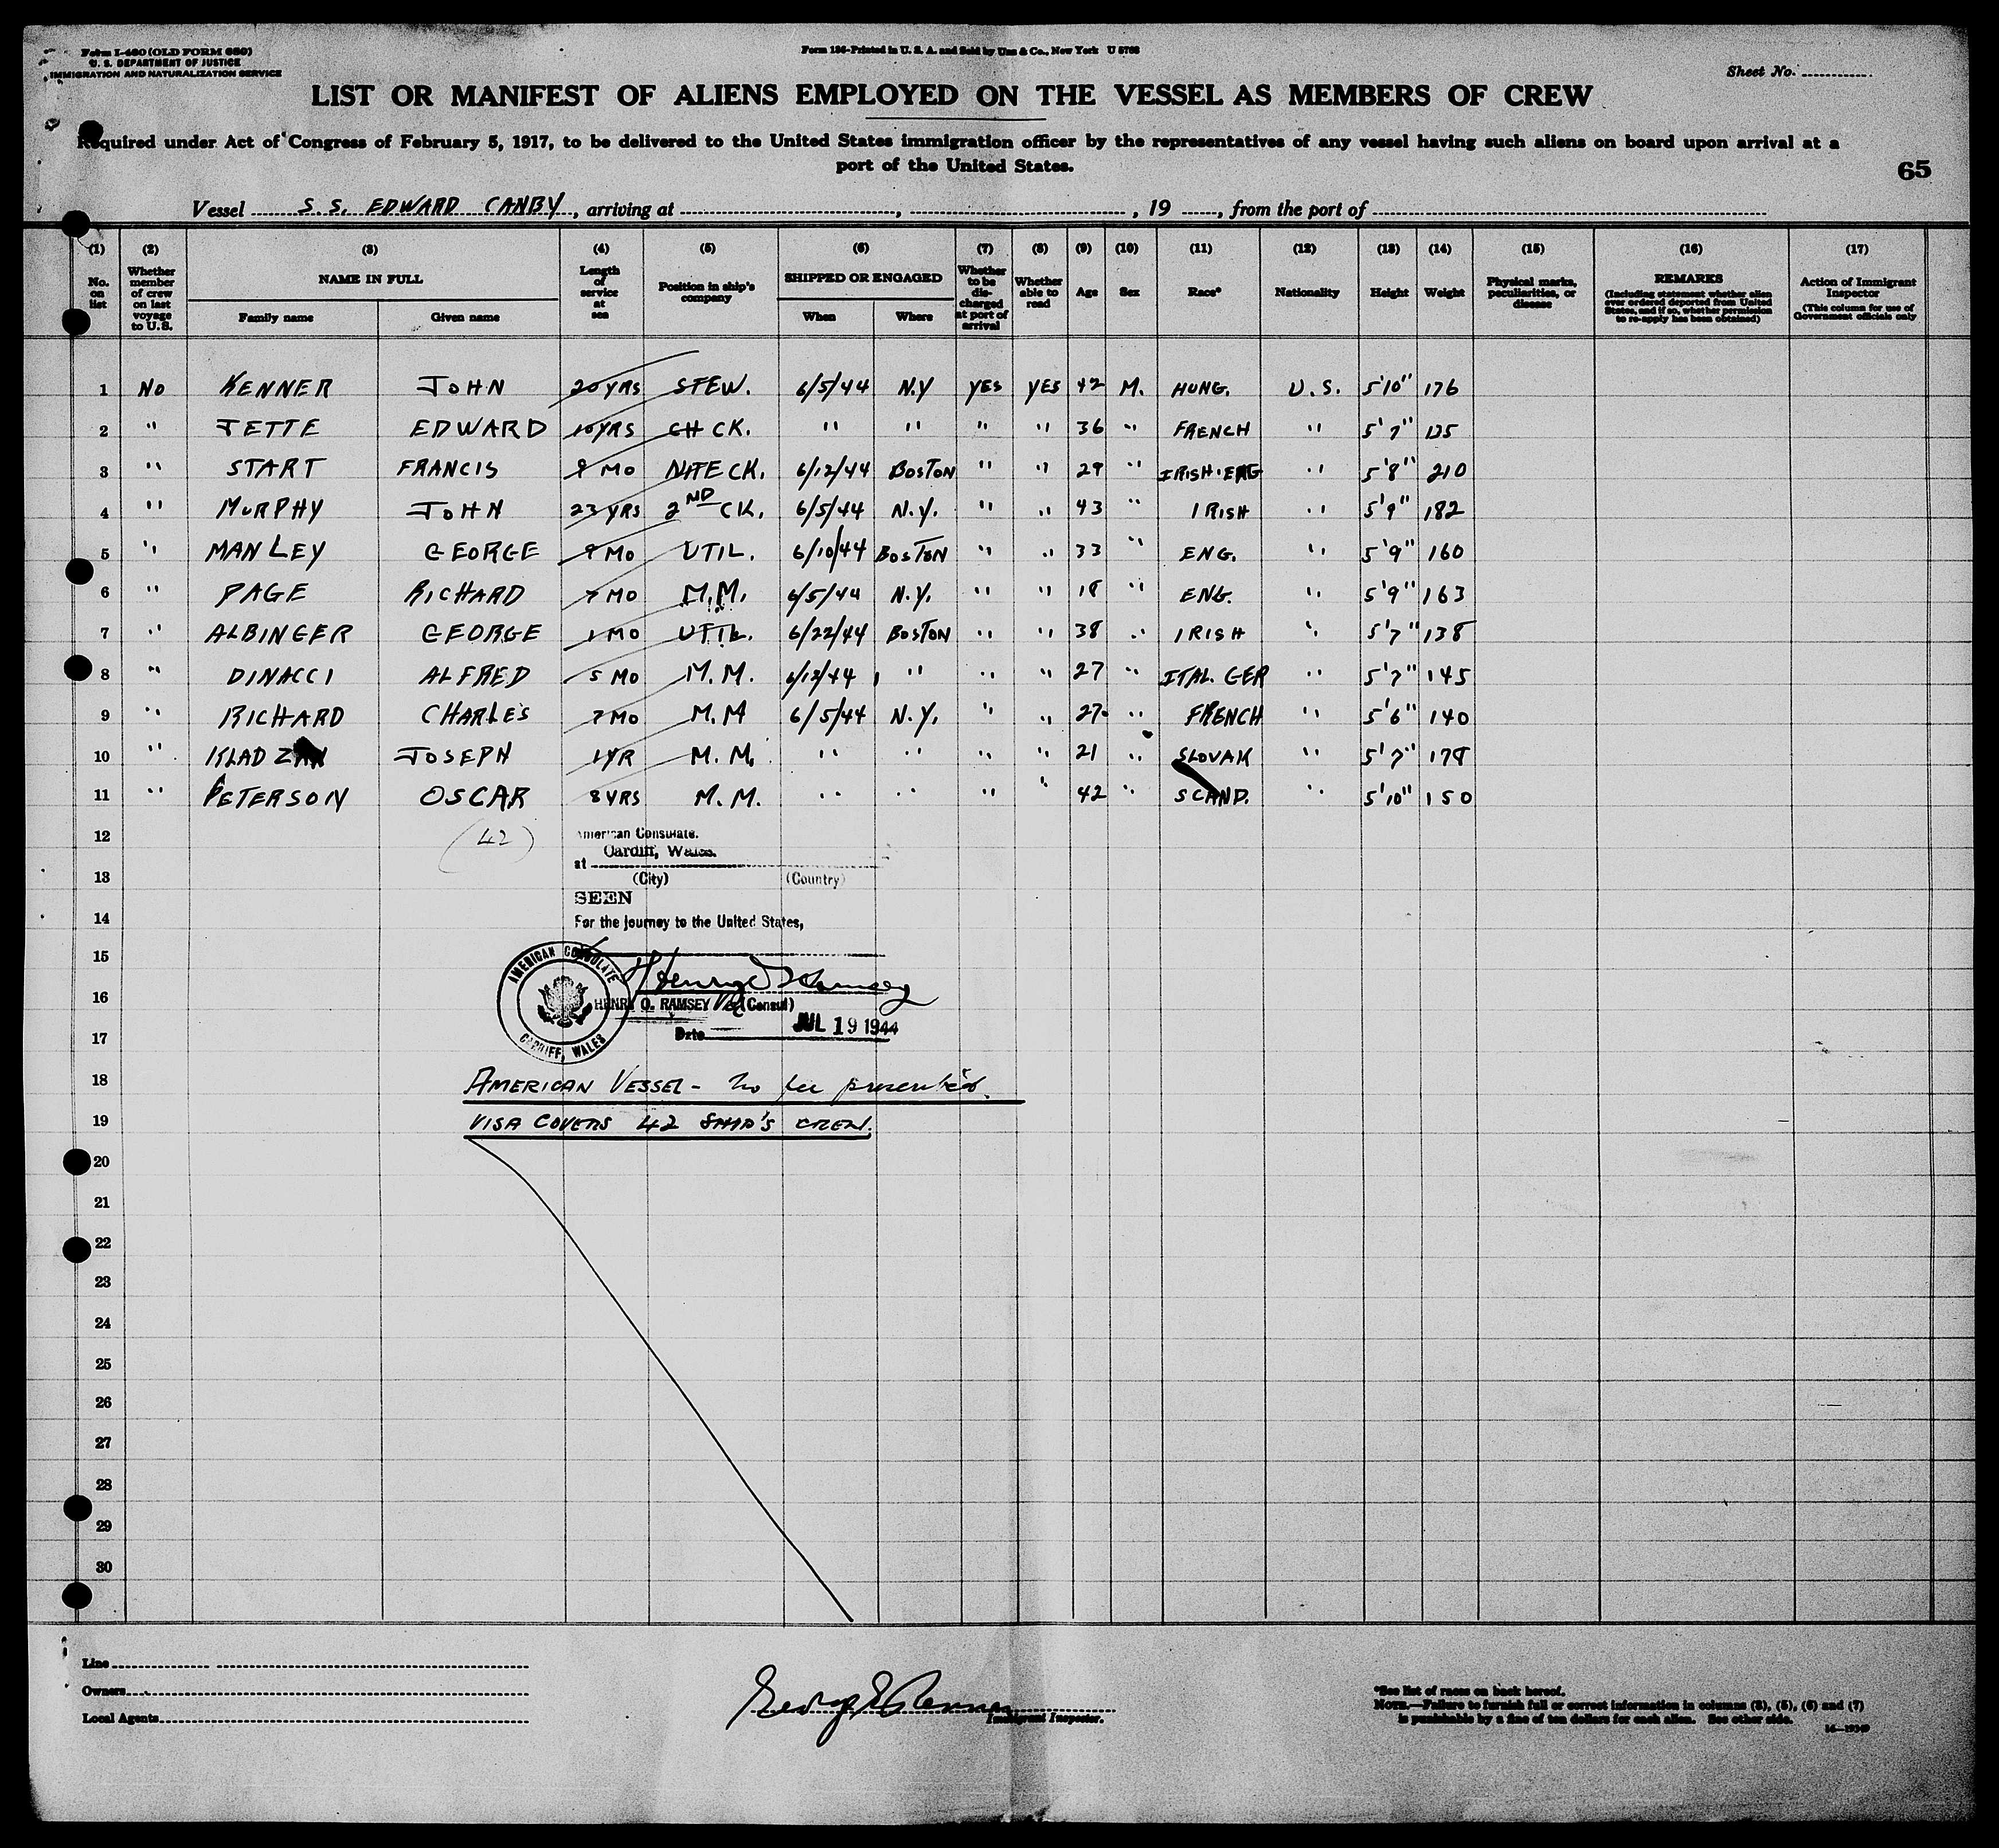 Form I-480 (OLD FORM 680)
U. S. DEPARTMENT OF JUSTICE
IMMIGRATION AND NATURALIZATION SERVICE
Form 136-Printed in U. S. A. and Sold by Unz & Co., New York U 5768
Sheet No.
LIST OR MANIFEST OF ALIENS EMPLOYED ON THE VESSEL AS MEMBERS OF CREW
Required under Act of Congress of February 5, 1917, to be delivered to the United States immigration officer by the representatives of any vessel having such aliens on board upon arrival at a
port of the United States.
65
Vessel S.S. EDWARD CANBY, arriving at , , 19 , from the port of
(1) (2) (3) (4) (5) (6) (7) (8) (9) (10) (11) (12) (13) (14) (15) (16) (17)
No. on list
Whether member of crew on last voyage to U.S.
NAME IN FULL
Family name Given name
Length of service at sea
Position in ship's company
SHIPPED OR ENGAGED
When Where
Whether to be discharged at port of arrival
Whether able to read
Age
Sex
Race*
Nationality
Height
Weight
Physical marks, peculiarities, or disease
REMARKS
(Including statement whether alien ever ordered deported from United States, and if so, whether permission to re-apply has been obtained)
Action of Immigrant Inspector
(This column for use of Government officials only
1 NO KENNER JOHN 20 YRS STEW. 6/5/44 N.Y YES YES 42 M. HUNG. U.S. 5'10" 176
2 " JETTE EDWARD 10 YRS CH CK. " " " " 36 " FRENCH " 5'7" 135
3 " START FRANCIS 9 MO NITE CK. 6/12/44 BOSTON " " 29 " IRISH-ENG " 5'8" 210
4 " MURPHY JOHN 23 YRS 2ND CK. 6/5/44 N.Y. " " 43 " IRISH " 5'9" 182
5 " MANLEY GEORGE 9 MO UTIL. 6/10/44 BOSTON " " 33 " ENG. " 5'9" 160
6 " PAGE RICHARD 7 MO M.M. 6/5/44 N.Y. " " 18 " ENG. " 5'9" 163
7 " ALBINGER GEORGE 1 MO UTIL. 6/22/44 BOSTON " " 38 " IRISH " 5'7" 138
8 " DINACCI ALFRED 5 MO M.M. 6/12/44 " " " 27 " ITAL. GER " 5'7" 145
9 " RICHARD CHARLES 7 MO M.M 6/5/44 N.Y. " " 27 " FRENCH " 5'6" 140
10 " JOSEPH 1 YR M.M. " " " " 21 " SLOVAK " 5'7" 178
11 " PETERSON OSCAR 8 YRS M.M. " " " " 42 " SCAND. " 5'10" 150
12
(42)
American Consulate.
at Cardiff, Wales.
13
(City) (Country)
SEEN
14
For the journey to the United States,
15
AMERICAN CONSULATE
CARDIFF, WALES
16
HENRY O. RAMSEY (Consul)
Date JUL 19 1944
17
18
AMERICAN VESSEL - No fee prescribed.
19
VISA COVERS 42 SHIP'S CREW.
20
21
22
23
24
25
26
27
28
29
30
Line
Owners
Local Agents
Immigrant Inspector.
*See list of races on back hereof.
NOTE.—Failure to furnish full or correct information in columns (3), (5), (6) and (7)
is punishable by a fine of ten dollars for each alien. See other side.